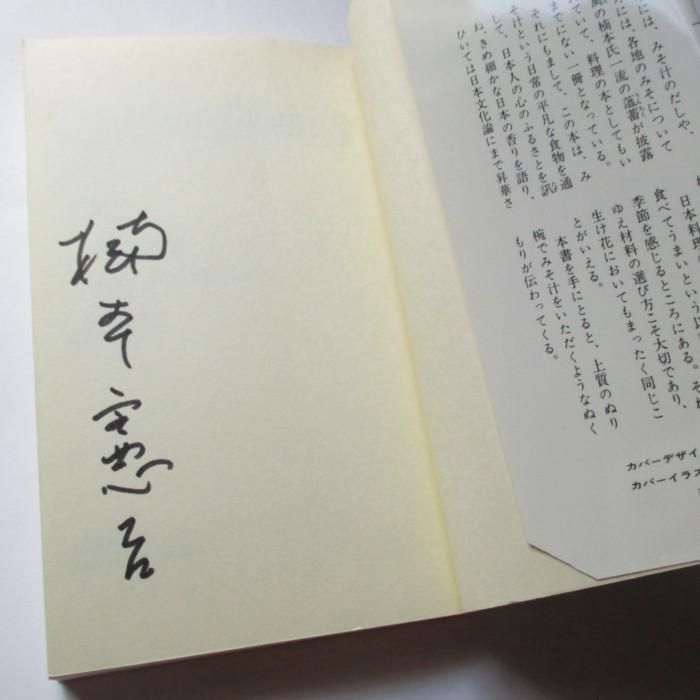 楠本憲吉
には、みそ汁のだしや、
には、各地のみそについて
の楠本氏一流の蘊蓄が披露
れていて、料理の本としてもい
までにない一冊となっている。
それにもまして、この本は、み
そ汁という日常の平凡な食物を通
して、日本人の心のふるさとを訊
ね、きめ細かな日本の香りを語り、
ひいては日本文化論にまで昇華さ
日本料理
食べてうまいという以
季節を感じるところにある。それ
ゆえ材料の選び方こそ大切であり、
生け花においてもまったく同じこ
とがいえる。
本書を手にとると、上質のぬり
椀でみそ汁をいただくようなぬく
もりが伝わってくる。
カバーデザイ
カバーイラス